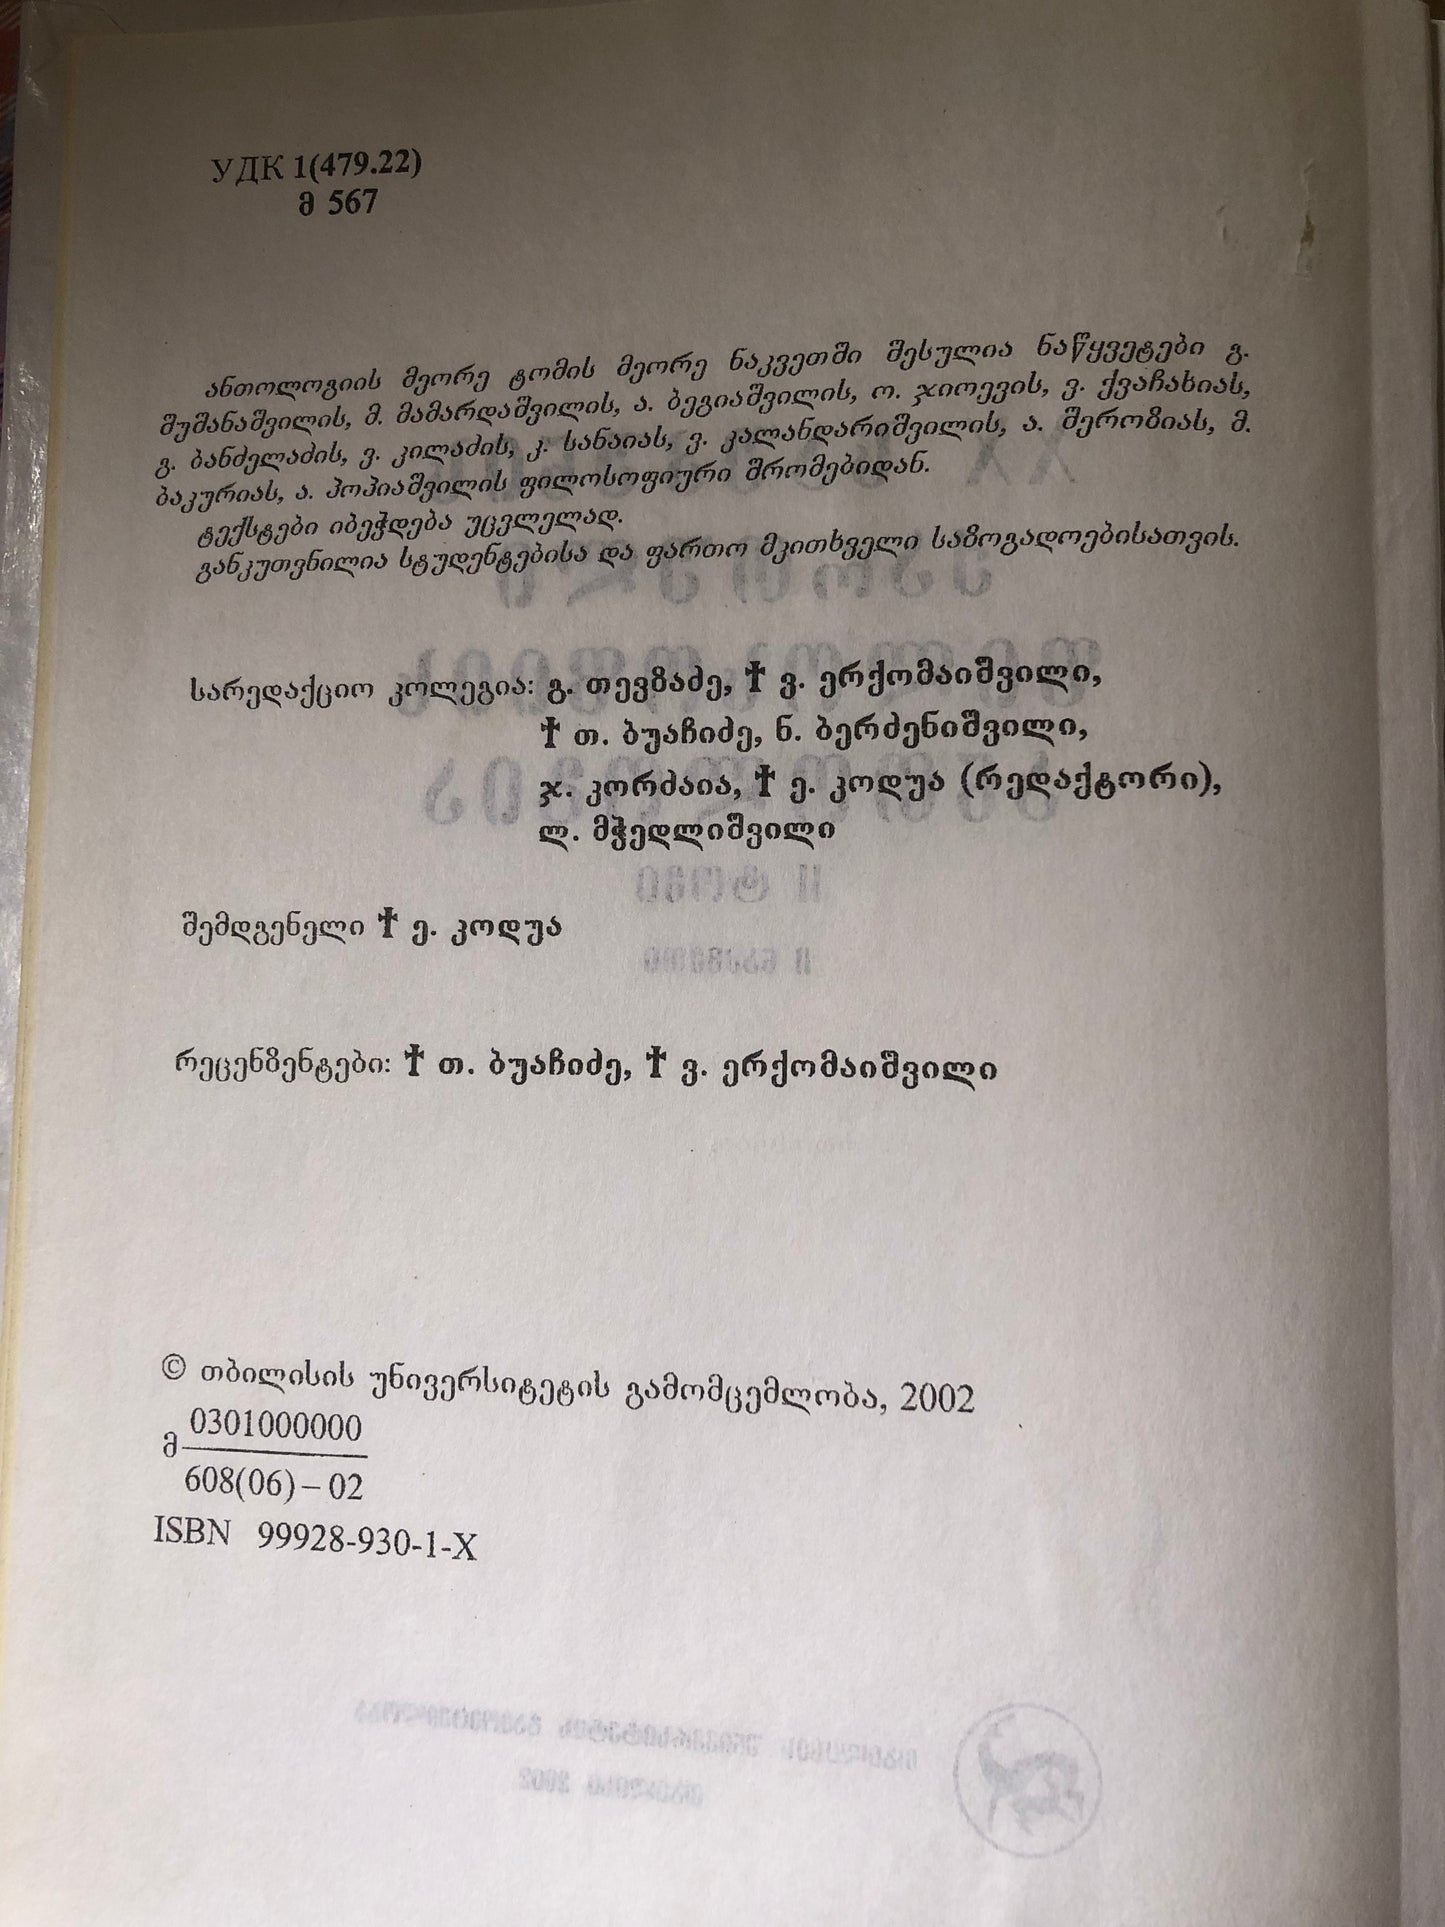 УДК 1(479.22)
მ 567
ანთოლოგიის მეორე ტომის მეორე ნაკვეთში შესულია ნაწყვეტები გ.
შუშანაშვილის, მ. მამარდაშვილის, ა. ბეგიაშვილის, ო. ჯიოევის, ვ. ქვაჩახიას,
გ. ბანძელაძის, ვ. კილაძის, კ. სანაიას, ვ. კალანდარიშვილის, ა. შეროზიას, მ.
ბაკურიას, ა. პოპიაშვილის ფილოსოფიური შრომებიდან.
ტექსტები იბეჭდება უცვლელად.
განკუთვნილია სტუდენტებისა და ფართო მკითხველი საზოგადოებისათვის.
სარედაქციო კოლეგია: გ. თევზაძე, ✝ ვ. ერქომაიშვილი,
✝ თ. ბუაჩიძე, ნ. ბერძენიშვილი,
ჯ. კორძაია, ✝ ე. კოდუა (რედაქტორი),
ლ. მჭედლიშვილი
შემდგენელი ✝ ე. კოდუა
რეცენზენტები: ✝ თ. ბუაჩიძე, ✝ ვ. ერქომაიშვილი
© თბილისის უნივერსიტეტის გამომცემლობა, 2002
0301000000
მ
608(06) – 02
ISBN 99928-930-1-X